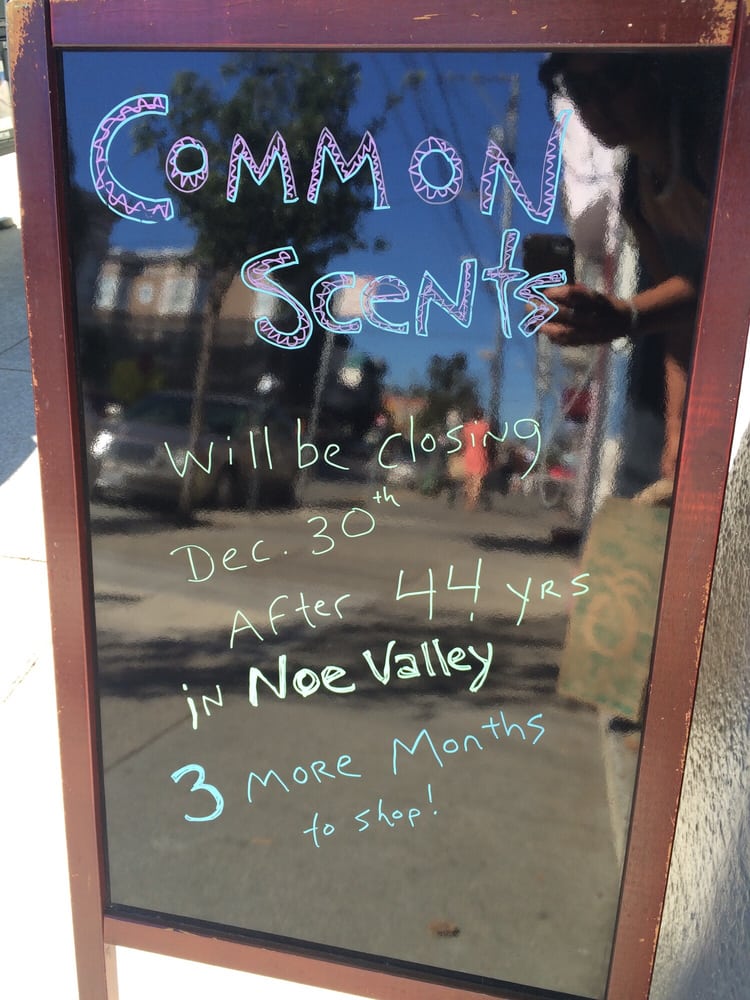 Common
Scents
Will be closing
Dec. 30th
After 44 yrs
in Noe Valley
3 More Months
to shop!